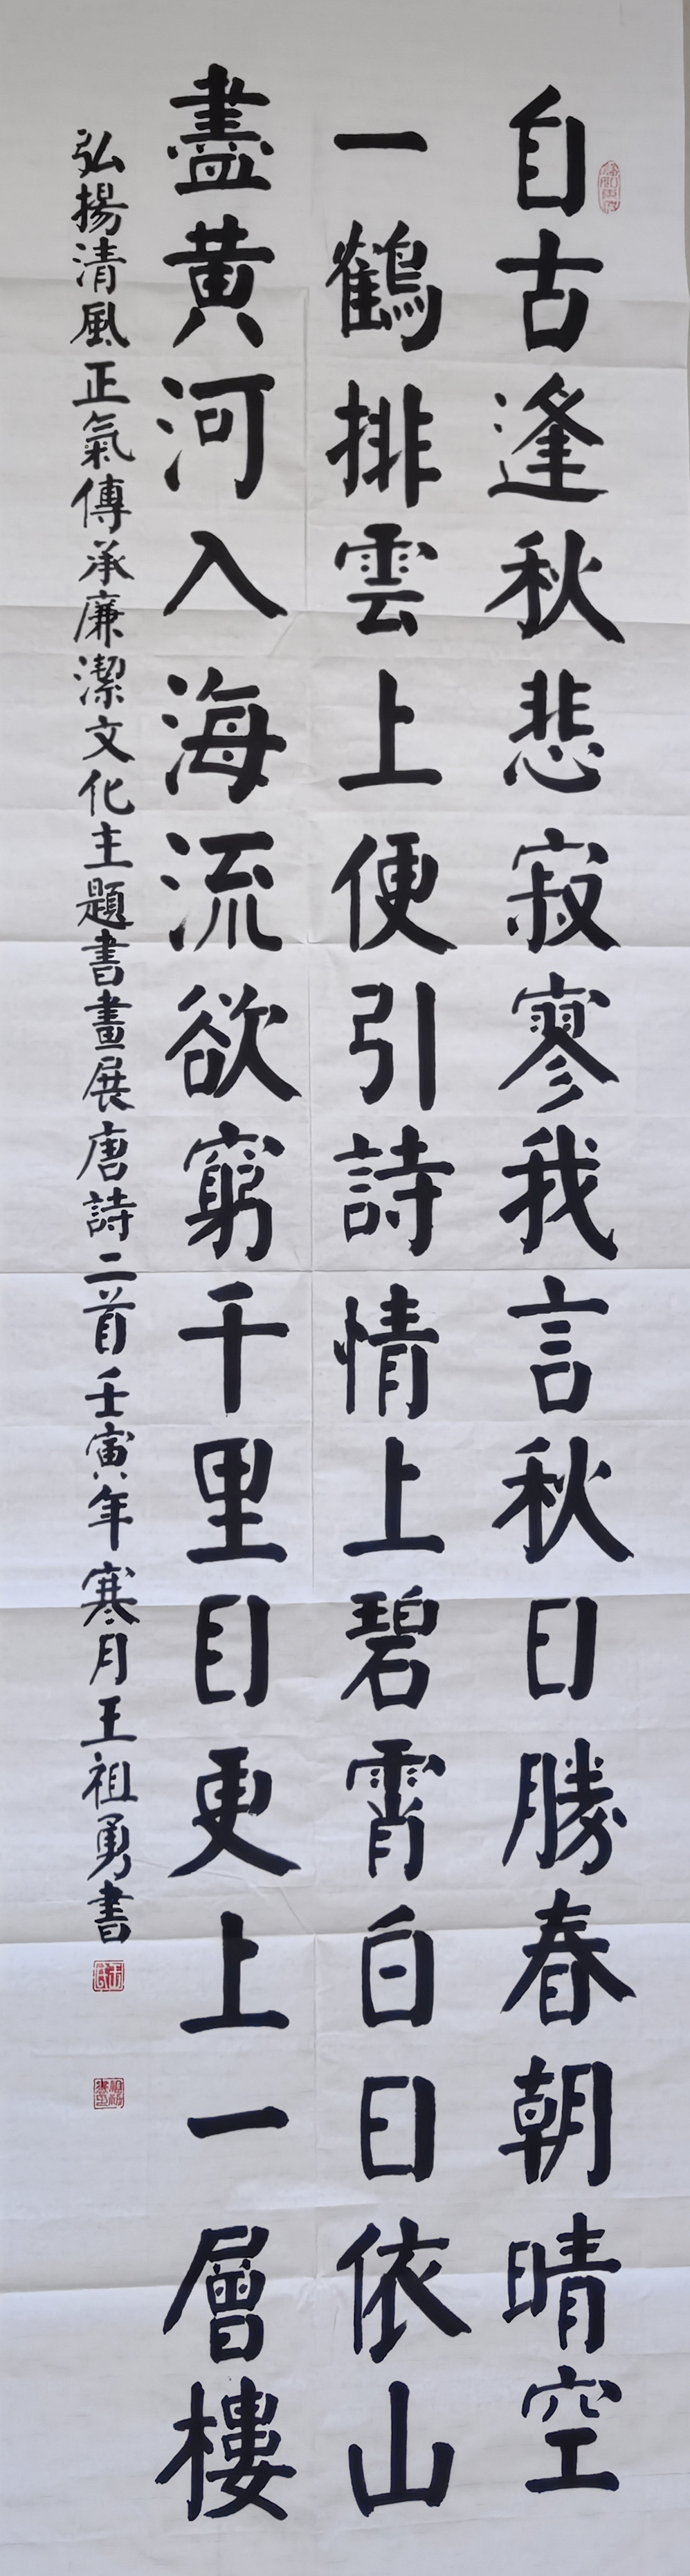 自古逢秋悲寂寥我言秋日勝春朝晴空
一鶴排雲上便引詩情上碧霄白日依山
盡黄河入海流欲窮千里目更上一層樓
弘揚清風正氣傳承廉潔文化主題書畫展唐詩二首壬寅年寒月王祖勇書